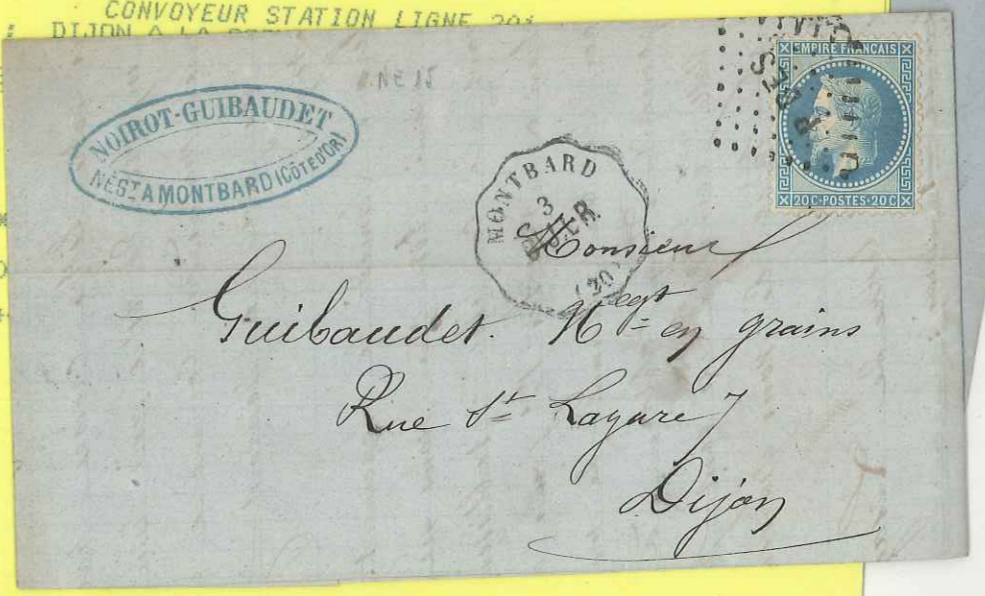 CONVOYEUR STATION LIGNE 201
DIJON A LA
NOIROT-GUIBAUDET
NÉGT A MONTBARD (CÔTE D'OR)
MONTBARD
3
EMPIRE FRANÇAIS
20C·POSTES·20C
Monsieur
Guibaudet. Negt en grains
Rue St Lazare 7
Dijon